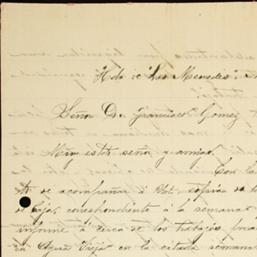 Hda "Las Mercedes"
Señor Dn Francisco Gomez
Muy estdo señor y amigo:
Con la
de acompañar á Vd. copia de la
de Caja, correspondiente á la semana
informe á cerca de los trabajos
en Agua Vieja en la citada semana